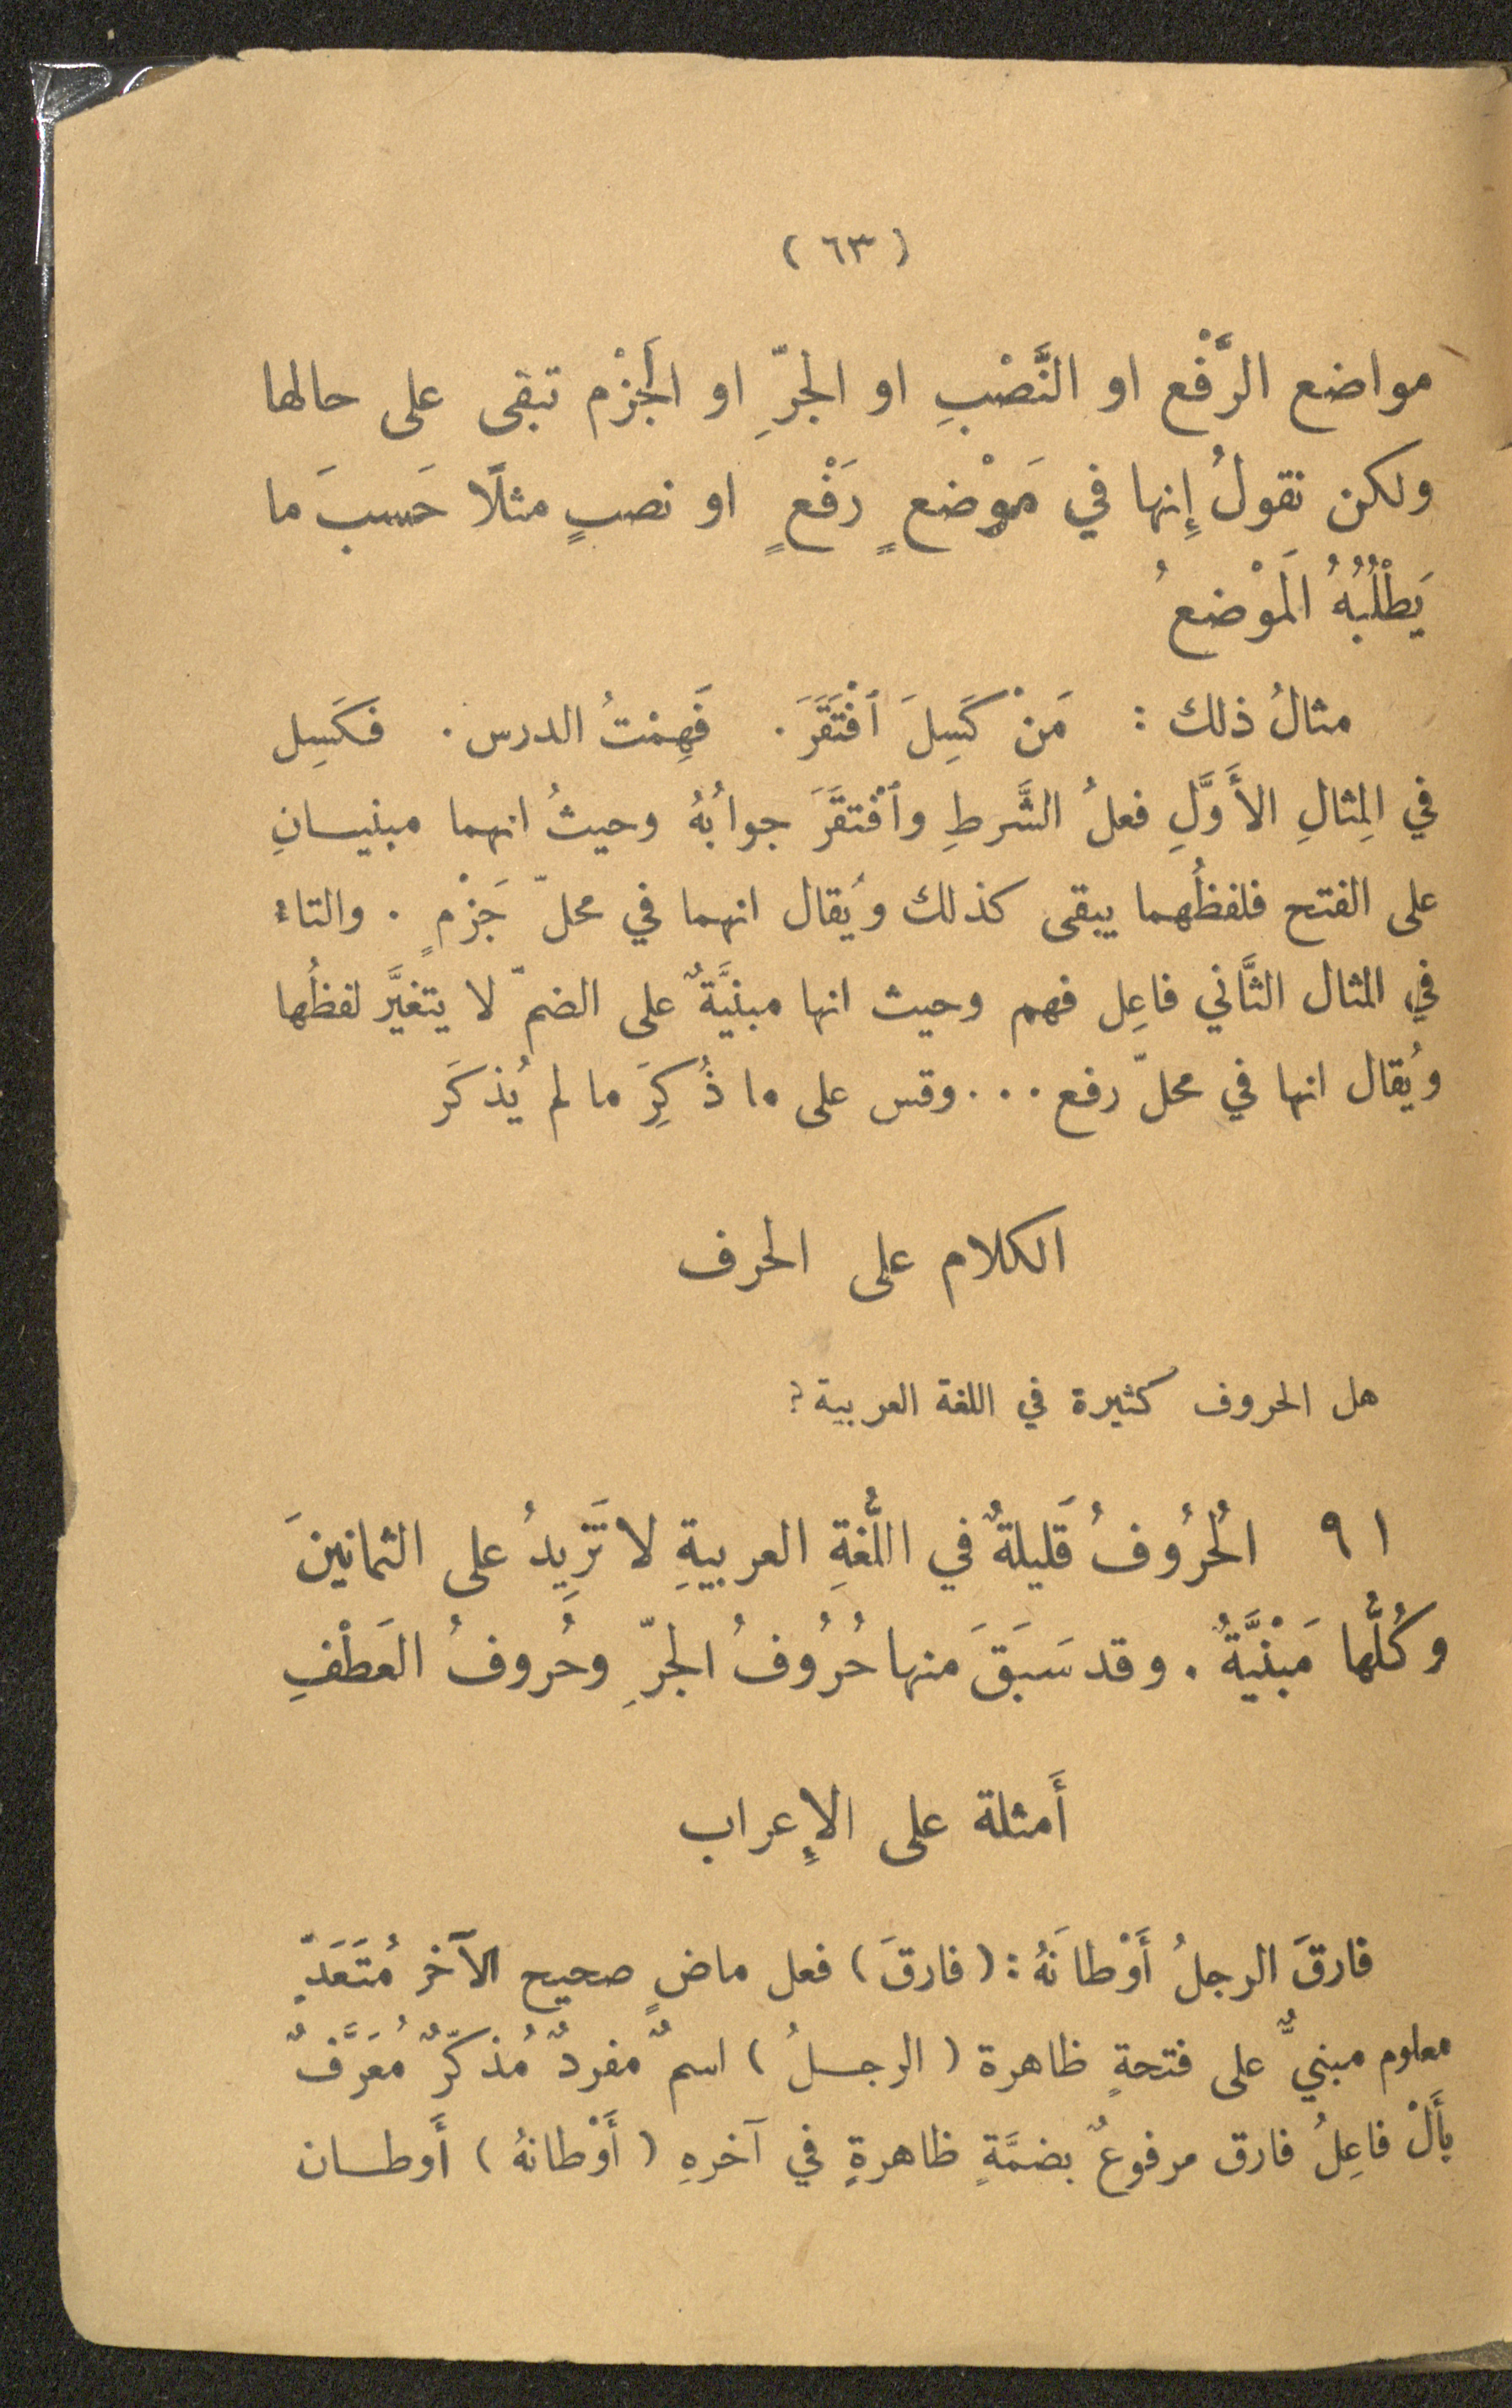 ( ٦٣ )
مواضع الرَّفْع او النَّصْبِ او الجرِّ او الجَزْم تبقى على حالها
ولكن نقولُ إِنها في مَوْضعٍ رَفْعٍ او نصبٍ مثلًا حَسبَ ما
يَطْلُبُهُ المَوْضعُ
مثالُ ذلك : مَنْ كَسِلَ ٱفْتَقَرَ . فَهِمْتُ الدرس . فكَسِل
في المِثالِ الأَوَّلِ فعلُ الشَّرطِ وٱفْتقَرَ جوابُهُ وحيثُ انهما مبنيـانِ
على الفتح فلفظُهما يبقى كذلك ويُقال انهما في محلّ جَزْمٍ . والتاء
في المثال الثَّاني فاعِل فهم وحيث انها مبنيَّةٌ على الضمّ لا يتغيَّر لفظُها
ويُقال انها في محلّ رفع . . . وقس على ما ذُكِرَ ما لم يُذكَر
الكلام على الحرف
هل الحروف كثيرة في اللغة العربية ؟
٩١ الحُرُوفُ قَليلةٌ في اللُّغةِ العربيةِ لا تَزِيدُ على الثمانينَ
وكُلُّها مَبْنيَّةٌ . وقد سَبَقَ منها حُرُوفُ الجرِّ وحُروفُ العَطْفِ
أَمثلة على الإِعراب
فارقَ الرجلُ أَوْطانَهُ : ( فارقَ ) فعل ماضٍ صحيح الآخر مُتَعَدٍّ
معلوم مبنيٌّ على فتحةٍ ظاهرة ( الرجـلُ ) اسمٌ مفردٌ مُذكّرٌ مُعَرَّفٌ
بأَلْ فاعِلُ فارق مرفوعٌ بضمَّةٍ ظاهرةٍ في آخرهِ ( أَوْطانهُ ) أَوطـان